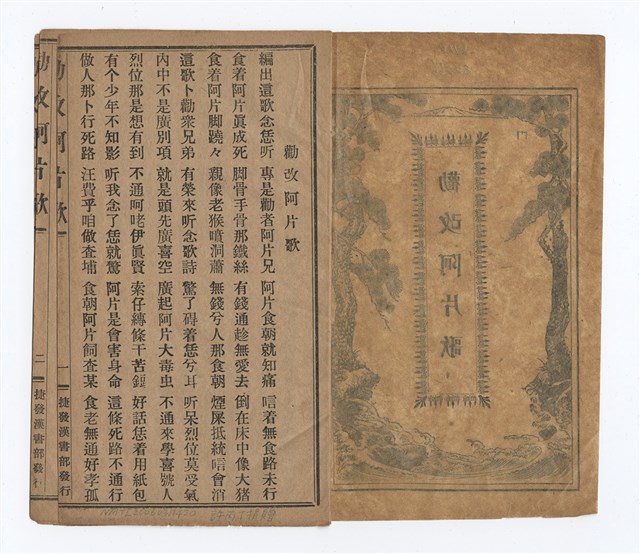 勸改阿片歌
勸改阿片歌
編出這歌念恁听 專是勸者阿片兄 阿片食朝就知痛 唁着無食路未行
食着阿片眞成死 脚骨手骨那鐵絲 有錢通趁無愛去 倒在床中像大猪
食着阿片脚蹺々 親像老猴噴洞蕭 無錢兮人那食朝 煙屎抵統唁會消
這歌卜勸衆兄弟 有榮來听念歌詩 驚了碍着恁兮耳 听呆烈位莫受氣
內中不是廣別項 就是頭先廣喜空 廣起阿片大毒虫 不通來學喜號人
烈位那是想有到 不通呵咾伊眞賢 索仔縛條干苦 好話恁着用紙包
有个少年不知影 听我念了恁就驚 阿片是會害身命 這條死路不通行
做人那卜行死路 汪費乎咱做查埔 食朝阿片飼查某 食老無通好孝孤
勸改阿片歌 一 捷發漢書部發行
勸改阿片歌 二 捷發漢書部發行